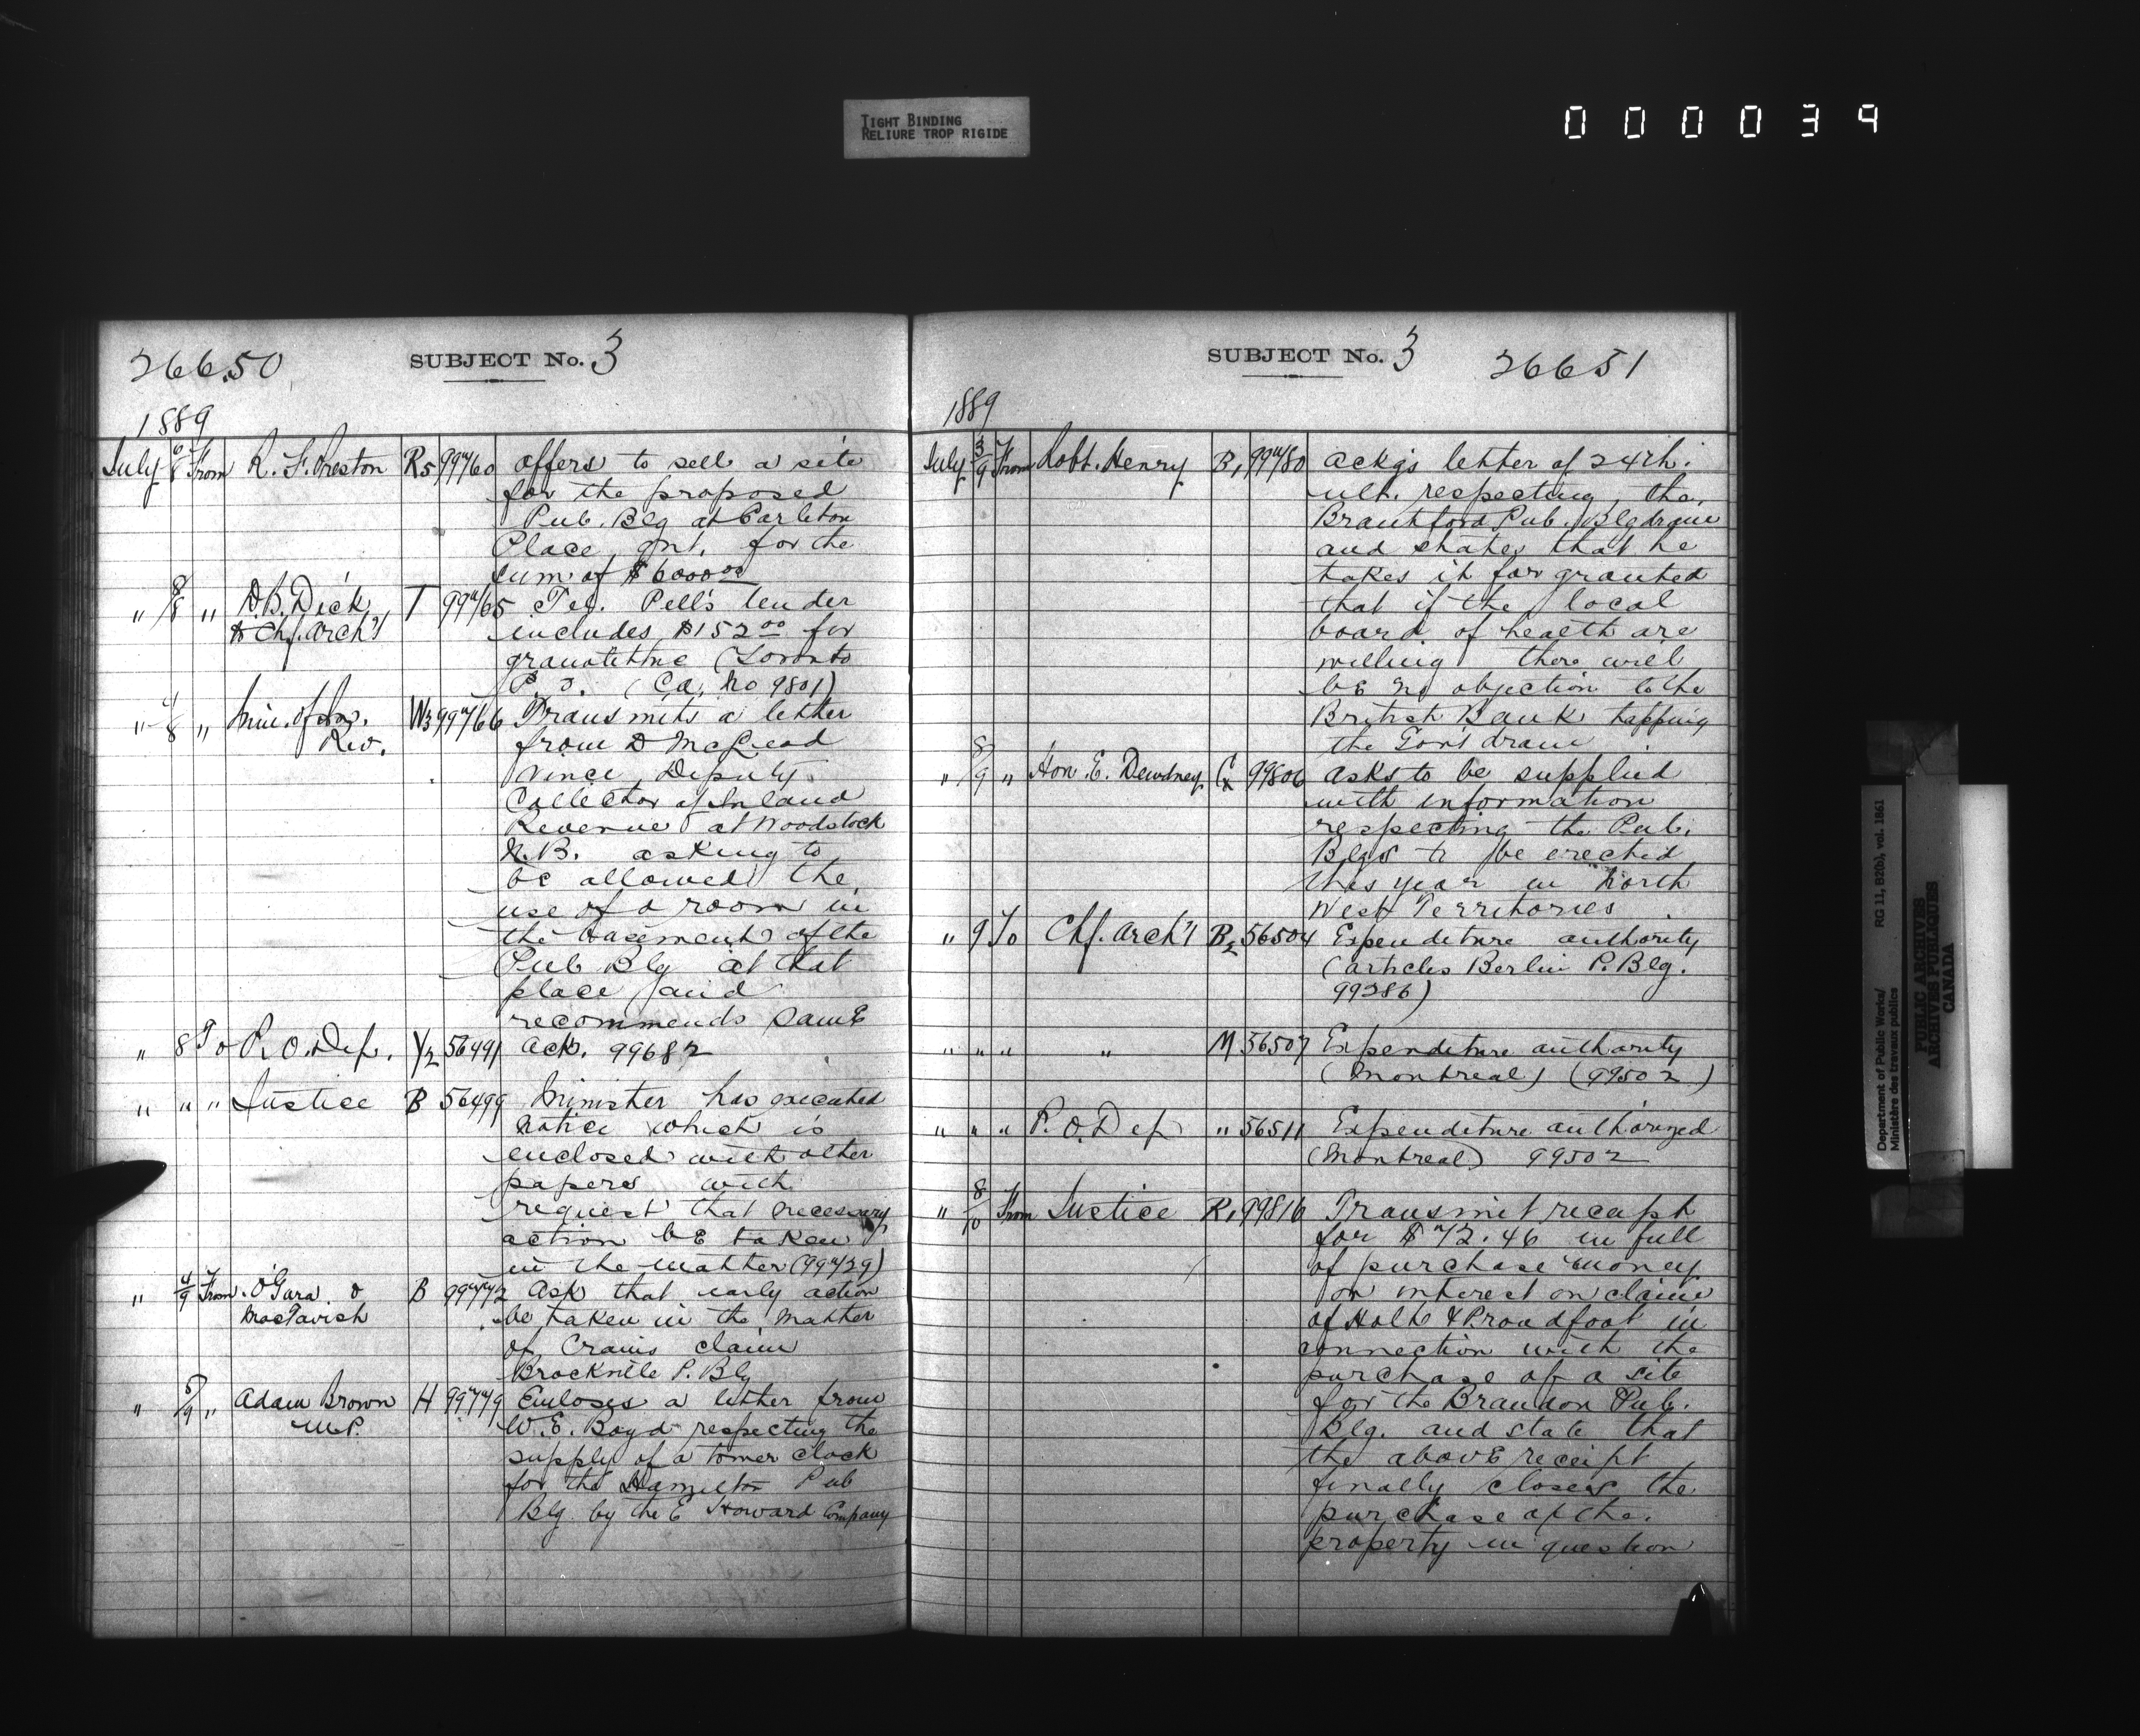 TIGHT BINDING
RELIURE TROP RIGIDE
000039
26650 SUBJECT No. 3
1889
July 6/8 From R. F. Preston R5 99760 offers to sell a site
for the proposed
Pub. Blg at Carleton
Place, Ont. for the
sum of $6000.00
" 8/8 " D.B. Dick T 99765 Tel. Pell's tender
to Chf. Arch't includes $152.00 for
granolithic (Toronto
P. O. (Ca. No 9801)
" 4/8 " Min. of In. W3 99766 Transmits a letter
Rev. from D McLeod
Vince, Deputy
Collector of Inland
Revenue at Woodstock
N.B. asking to
be allowed the
use of a room in
the basement of the
Pub Blg at that
place and
recommends same
" 8 To P. O. Dep. Y2 56491 Ack. 99682
" " " Justice B 56499 Minister has executed
notice which is
enclosed with other
papers with
request that necessary
action be taken
in the matter (99729)
" 4/9 From O'Gara & B 99772 Ask that early action
MacTavish be taken in the matter
of Crains claim
Brockville P. Blg
" 5/9 " Adam Brown H 99779 Encloses a letter from
M.P. W. E. Boyd respecting the
supply of a tower clock
for the Hamilton Pub
Blg. by the E Howard Company
SUBJECT No. 3 26651
1889
July 3/9 From Robt. Henry B1 99780 Ackgs letter of 24th.
ult. respecting the
Brantford Pub. Blg drain
and states that he
takes it for granted
that if the local
board of health are
willing there will
be no objection to the
British Bank tapping
the Gov't drain
" 8/9 " Hon. E. Dewdney 99806 asks to be supplied
with information
respecting the Pub.
Blgs to be erected
this year in North
West Territories
" 9 To Chf. Arch't B2 56504 Expenditure authority
(articles Berlin P. Blg.
99286)
" " " " M 56507 Expenditure authority
(Montreal) (99502)
" " " P. O. Dep " 56511 Expenditure authorized
(Montreal) 99502
" 8/10 From Justice R1 99816 Transmit receipt
for $72.46 in full
of purchase money
or interest on claim
of Holt & Proudfoot in
connection with the
purchase of a site
for the Brandon Pub.
Blg. and state that
the above receipt
finally closes the
purchase of the
property in question
Department of Public Works/ RG 11, B2(b), vol. 1861
Ministère des travaux publics
PUBLIC ARCHIVES
ARCHIVES PUBLIQUES
CANADA